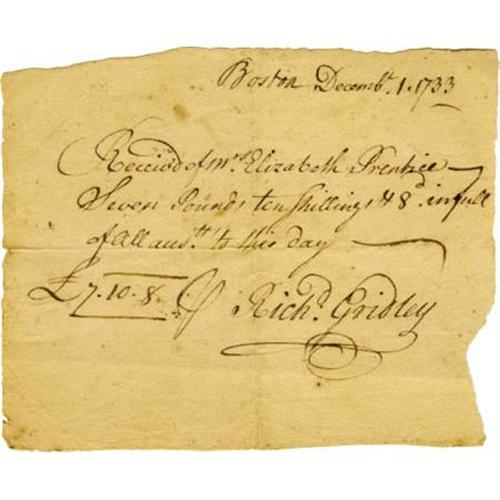 Boston Decembr. 1. 1733
Receiv'd of Mrs. Elizabeth Prentice
Seven Pounds ten shillings & 8d. in full
of All acctts to this day
£7.10.8. Richd. Gridley